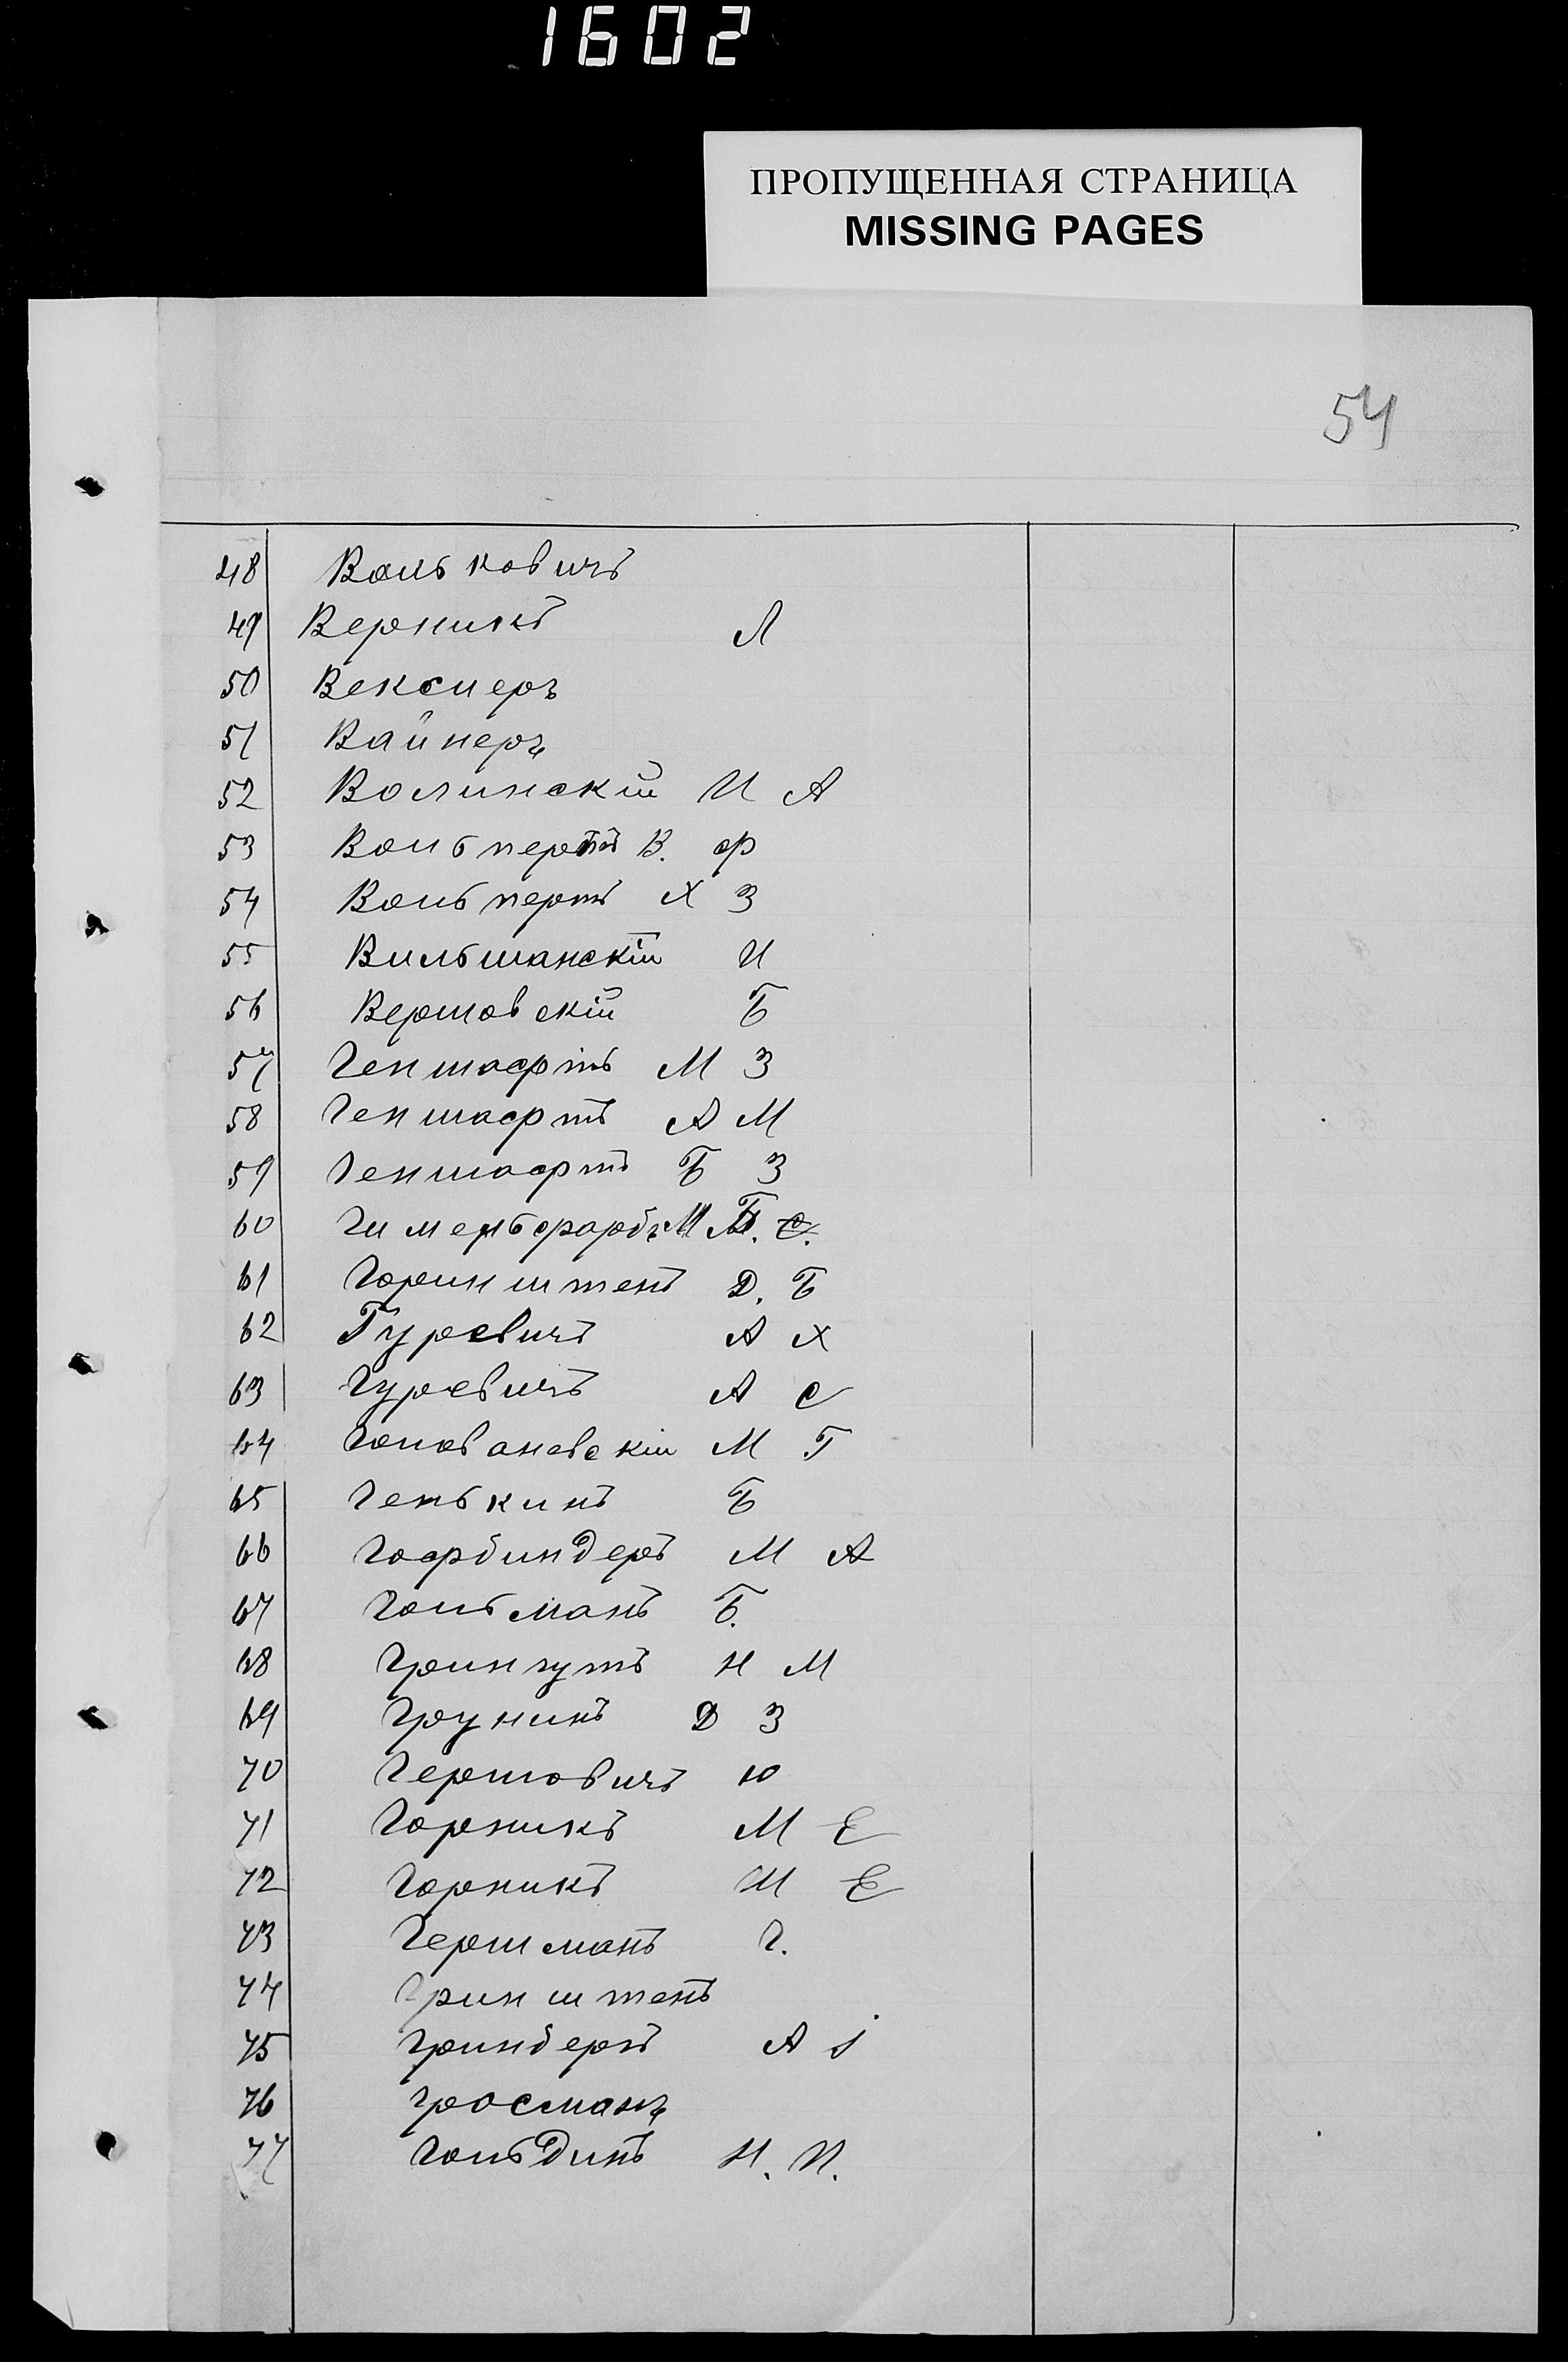 1602
ПРОПУЩЕННАЯ СТРАНИЦА
MISSING PAGES
54
48 Вольковичъ
49 Верникъ Л
50 Векслеръ
51 Вайнеръ
52 Волинскій И А
53 Вольпертъ В. Ф
54 Вольпертъ Х З
55 Вильшанскій И
56 Вершовскій Б
57 Геншафтъ М З
58 Геншафтъ А М
59 Геншафтъ Б З
60 Гимельфарбъ М
61 Горинштенъ Д. Б
62 Гуревичъ А Х
63 Гуревичъ А С
64 Голованевскій М Г
65 Генькинъ Б
66 Гофбиндеръ М А
67 Гольманъ Б.
68 Грингутъ Н М
69 Грунинъ Д З
70 Гершовичъ Ю
71 Горникъ М Е
72 Горникъ И Е
73 Гершманъ Г.
74 Гринштенъ
75 Гринберъ А І
76 Гросманъ
77 Гольдинъ Н. И.